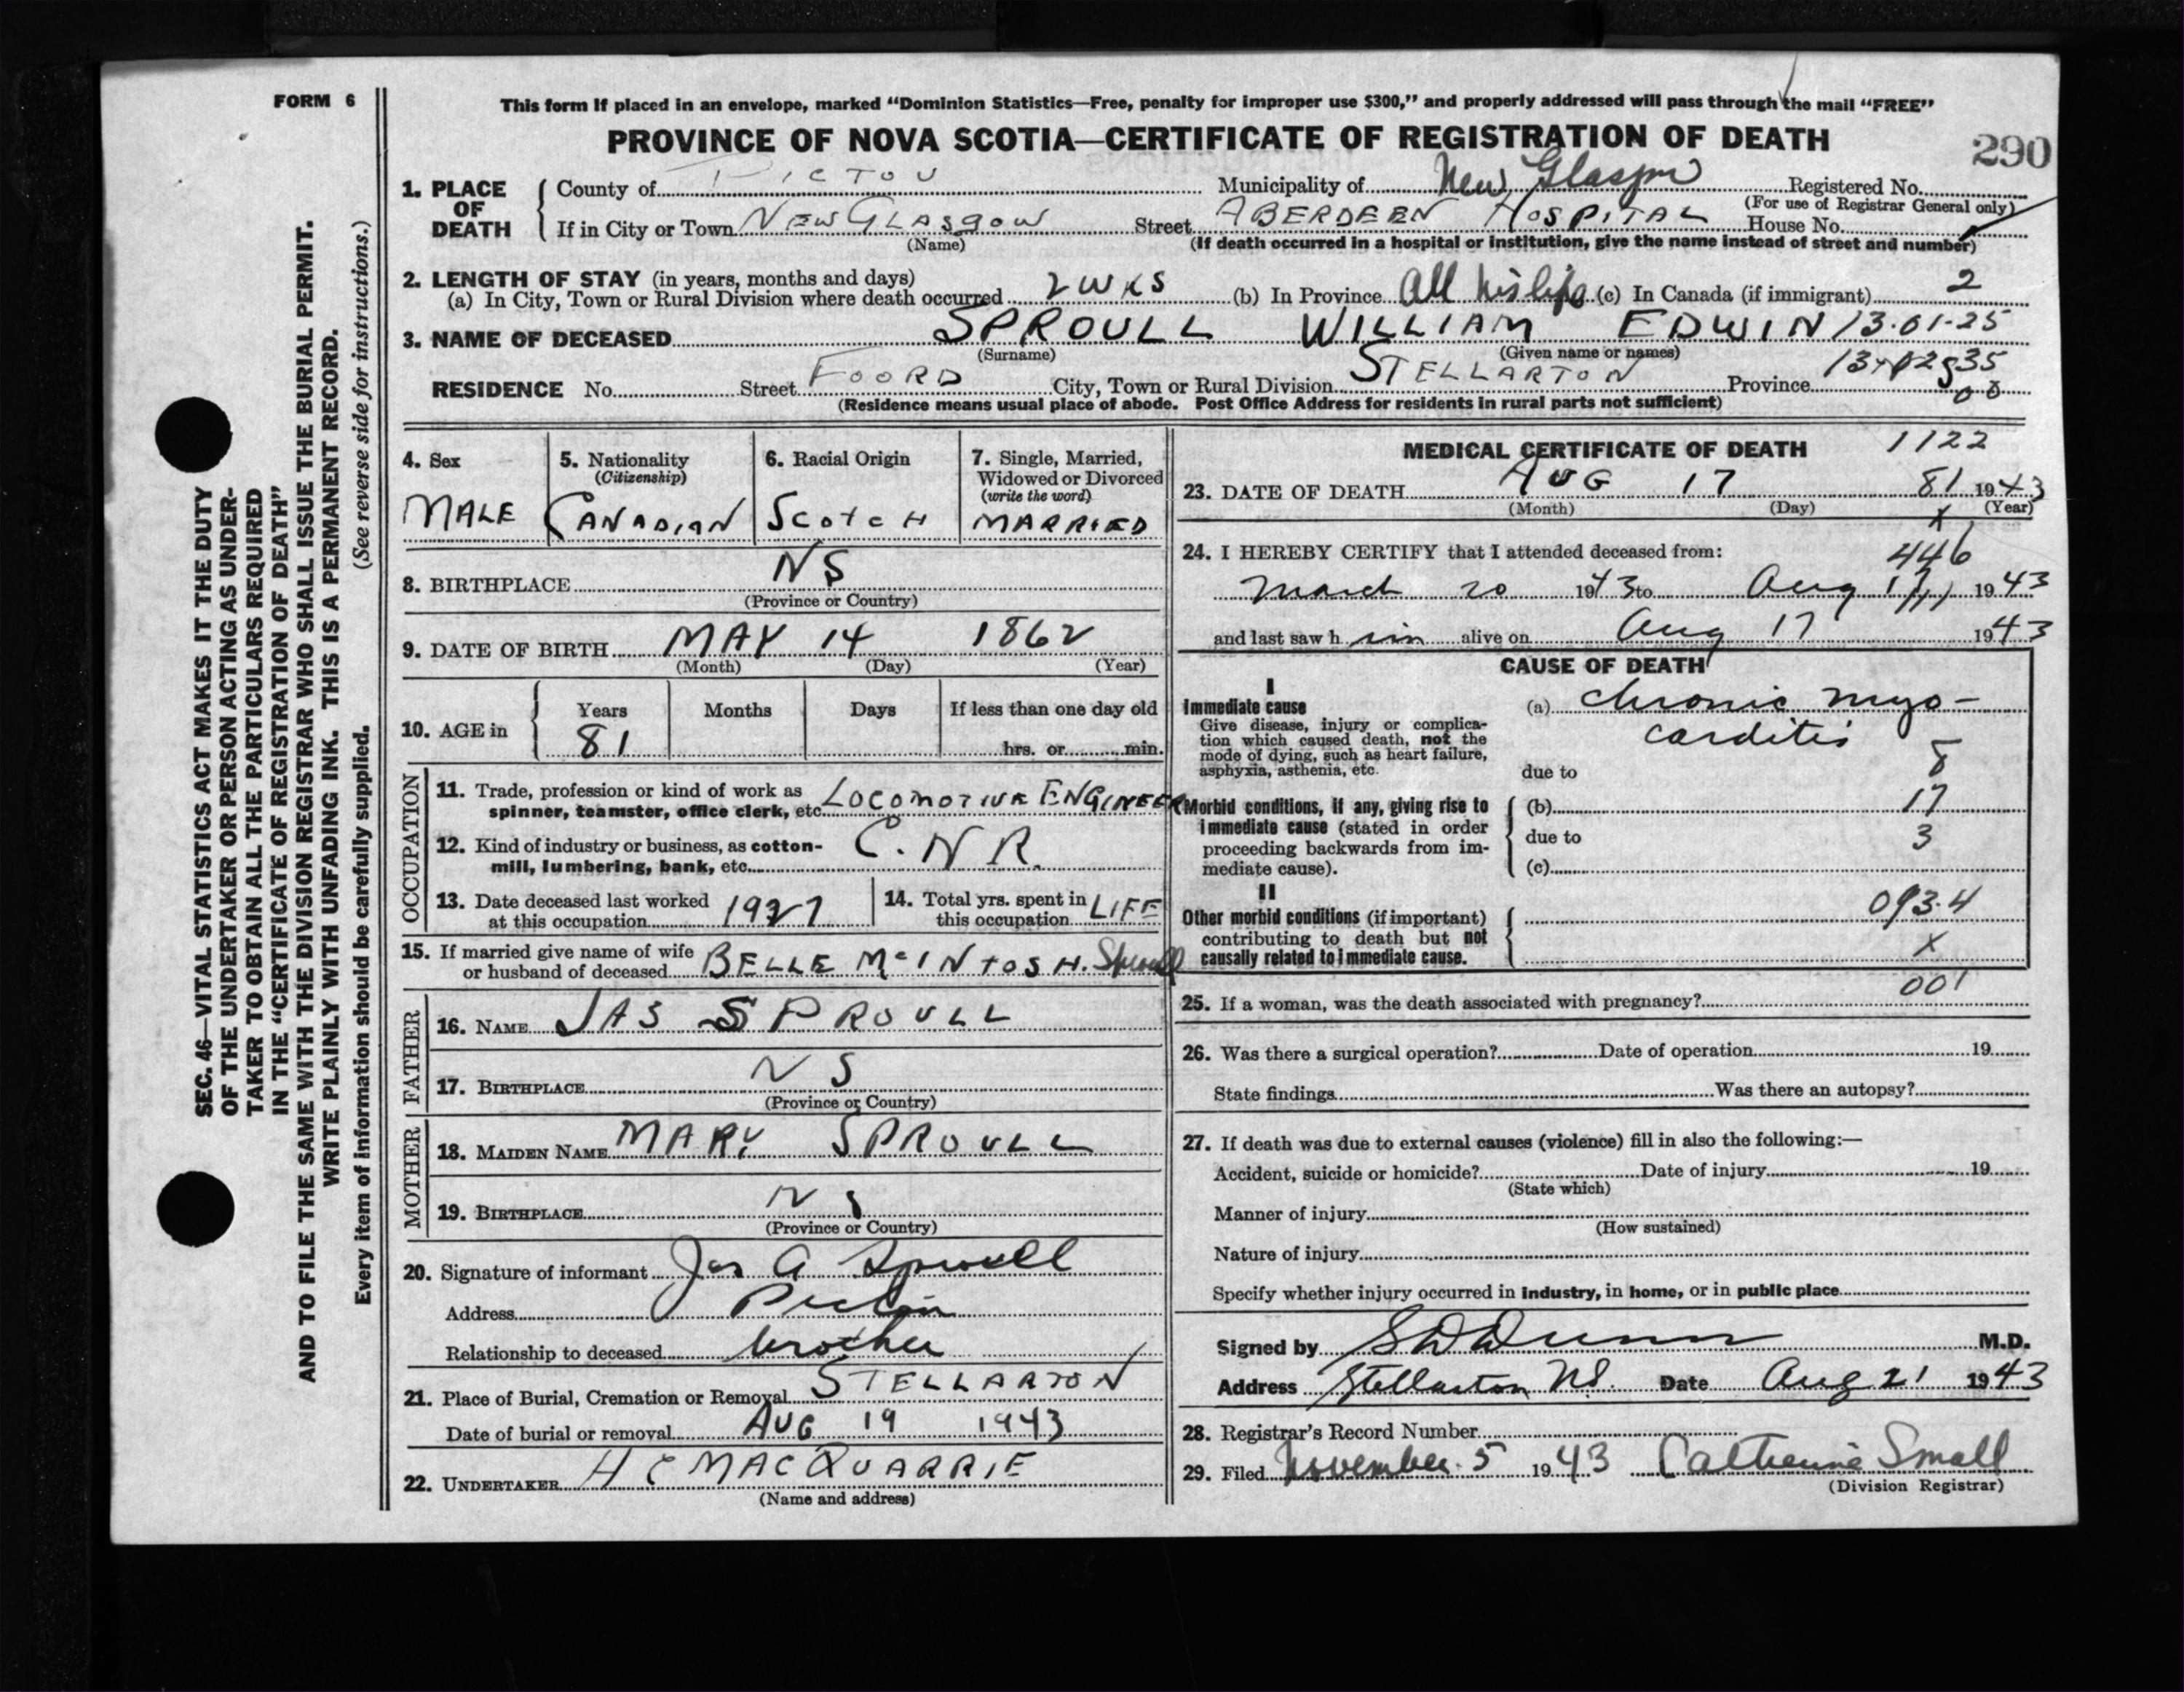 FORM 6
This form if placed in an envelope, marked “Dominion Statistics—Free, penalty for improper use $300,” and properly addressed will pass through the mail “FREE”
PROVINCE OF NOVA SCOTIA—CERTIFICATE OF REGISTRATION OF DEATH
290
1. PLACE OF DEATH
County of PICTOU Municipality of New Glasgow Registered No.
(For use of Registrar General only)
If in City or Town NEW GLASGOW Street ABERDEEN HOSPITAL House No.
(Name) (If death occurred in a hospital or institution, give the name instead of street and number)
2. LENGTH OF STAY (in years, months and days)
(a) In City, Town or Rural Division where death occurred 2 WKS (b) In Province All his life (c) In Canada (if immigrant) 2
3. NAME OF DECEASED SPROULL WILLIAM EDWIN 13-01-25
(Surname) (Given name or names)
RESIDENCE No. Street FOORD City, Town or Rural Division STELLARTON Province
(Residence means usual place of abode. Post Office Address for residents in rural parts not sufficient)
4. Sex MALE
5. Nationality (Citizenship) CANADIAN
6. Racial Origin SCOTCH
7. Single, Married, Widowed or Divorced (write the word) MARRIED
8. BIRTHPLACE NS
(Province or Country)
9. DATE OF BIRTH MAY 14 1862
(Month) (Day) (Year)
10. AGE in Years 81 Months Days If less than one day old hrs. or min.
OCCUPATION
11. Trade, profession or kind of work as spinner, teamster, office clerk, etc. LOCOMOTIVE ENGINEER
12. Kind of industry or business, as cotton-mill, lumbering, bank, etc. C.N.R.
13. Date deceased last worked at this occupation 1927
14. Total yrs. spent in this occupation LIFE
15. If married give name of wife or husband of deceased BELLE McINTOSH. Sproull
FATHER
16. NAME JAS SPROULL
17. BIRTHPLACE NS
(Province or Country)
MOTHER
18. MAIDEN NAME MARY SPROULL
19. BIRTHPLACE NS
(Province or Country)
20. Signature of informant Jas A Sproull
Address Pictou
Relationship to deceased brother
21. Place of Burial, Cremation or Removal STELLARTON
Date of burial or removal AUG 19 1943
22. UNDERTAKER H C MACQUARRIE
(Name and address)
MEDICAL CERTIFICATE OF DEATH 1122
23. DATE OF DEATH AUG 17 81 1943
(Month) (Day) (Year)
X
24. I HEREBY CERTIFY that I attended deceased from: 446
March 20 1943 to Aug 17 1943
and last saw him alive on Aug 17 1943
CAUSE OF DEATH
I
Immediate cause
Give disease, injury or complication which caused death, not the mode of dying, such as heart failure, asphyxia, asthenia, etc.
(a) chronic myo-
carditis
due to 8
Morbid conditions, if any, giving rise to immediate cause (stated in order proceeding backwards from immediate cause).
(b) 17
due to 3
(c)
II
Other morbid conditions (if important) contributing to death but not causally related to immediate cause.
093.4
X
25. If a woman, was the death associated with pregnancy? 001
26. Was there a surgical operation? Date of operation 19
State findings Was there an autopsy?
27. If death was due to external causes (violence) fill in also the following:—
Accident, suicide or homicide? Date of injury 19
(State which)
Manner of injury
(How sustained)
Nature of injury
Specify whether injury occurred in industry, in home, or in public place
Signed by S D Dunn M.D.
Address Stellarton N.S. Date Aug 21 1943
28. Registrar's Record Number
29. Filed November 5 1943 Catherine Small
(Division Registrar)
SEC. 46—VITAL STATISTICS ACT MAKES IT THE DUTY
OF THE UNDERTAKER OR PERSON ACTING AS UNDER-
TAKER TO OBTAIN ALL THE PARTICULARS REQUIRED
IN THE “CERTIFICATE OF REGISTRATION OF DEATH”
AND TO FILE THE SAME WITH THE DIVISION REGISTRAR WHO SHALL ISSUE THE BURIAL PERMIT.
WRITE PLAINLY WITH UNFADING INK. THIS IS A PERMANENT RECORD.
Every item of information should be carefully supplied. (See reverse side for instructions.)